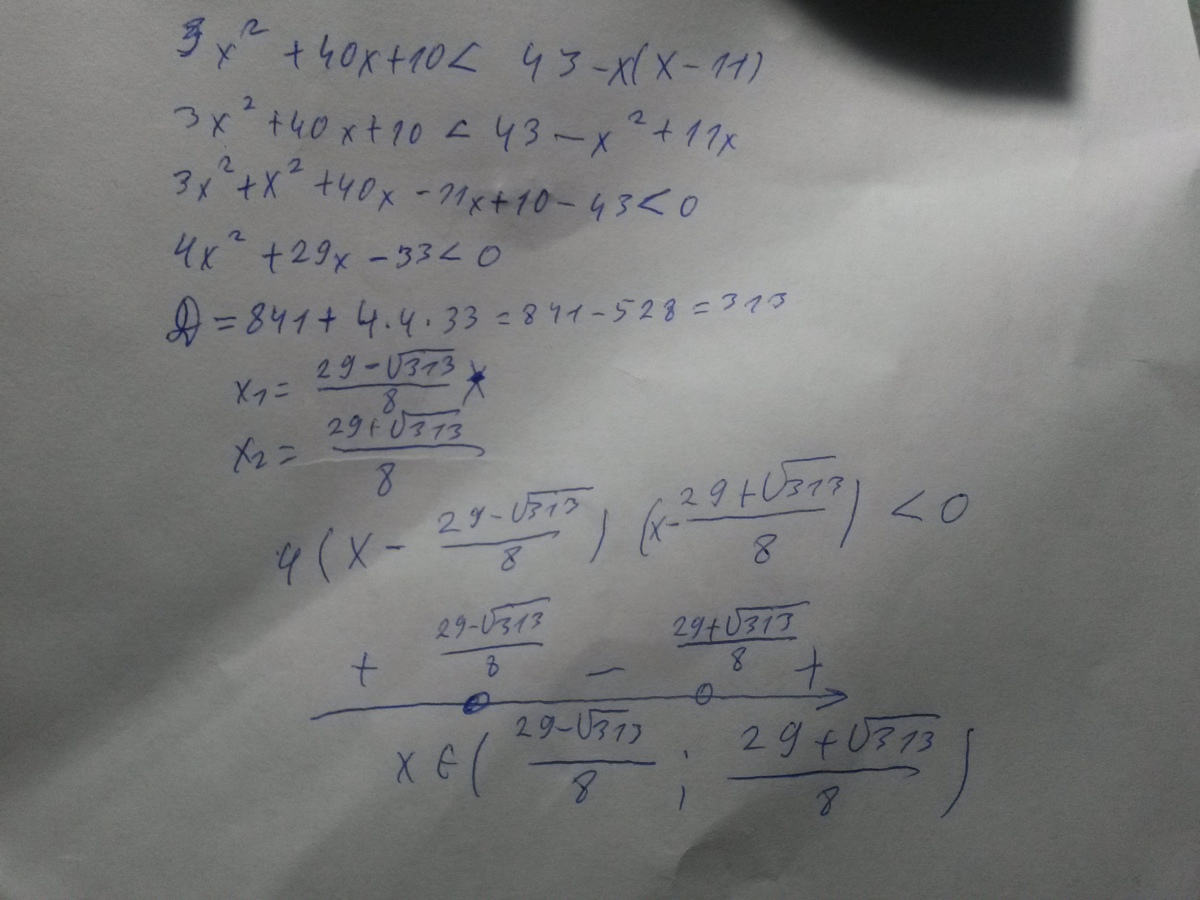 3x² + 40x + 10 < 43 - x(x - 11)
3x² + 40x + 10 < 43 - x² + 11x
3x² + x² + 40x - 11x + 10 - 43 < 0
4x² + 29x - 33 < 0
D = 841 + 4·4·33 = 841 - 528 = 313
x₁ = (29 - √313)/8
x₂ = (29 + √313)/8
4(x - (29 - √313)/8)(x - (29 + √313)/8) < 0
+ (29 - √313)/8 - (29 + √313)/8 +
x ∈ ((29 - √313)/8 ; (29 + √313)/8)